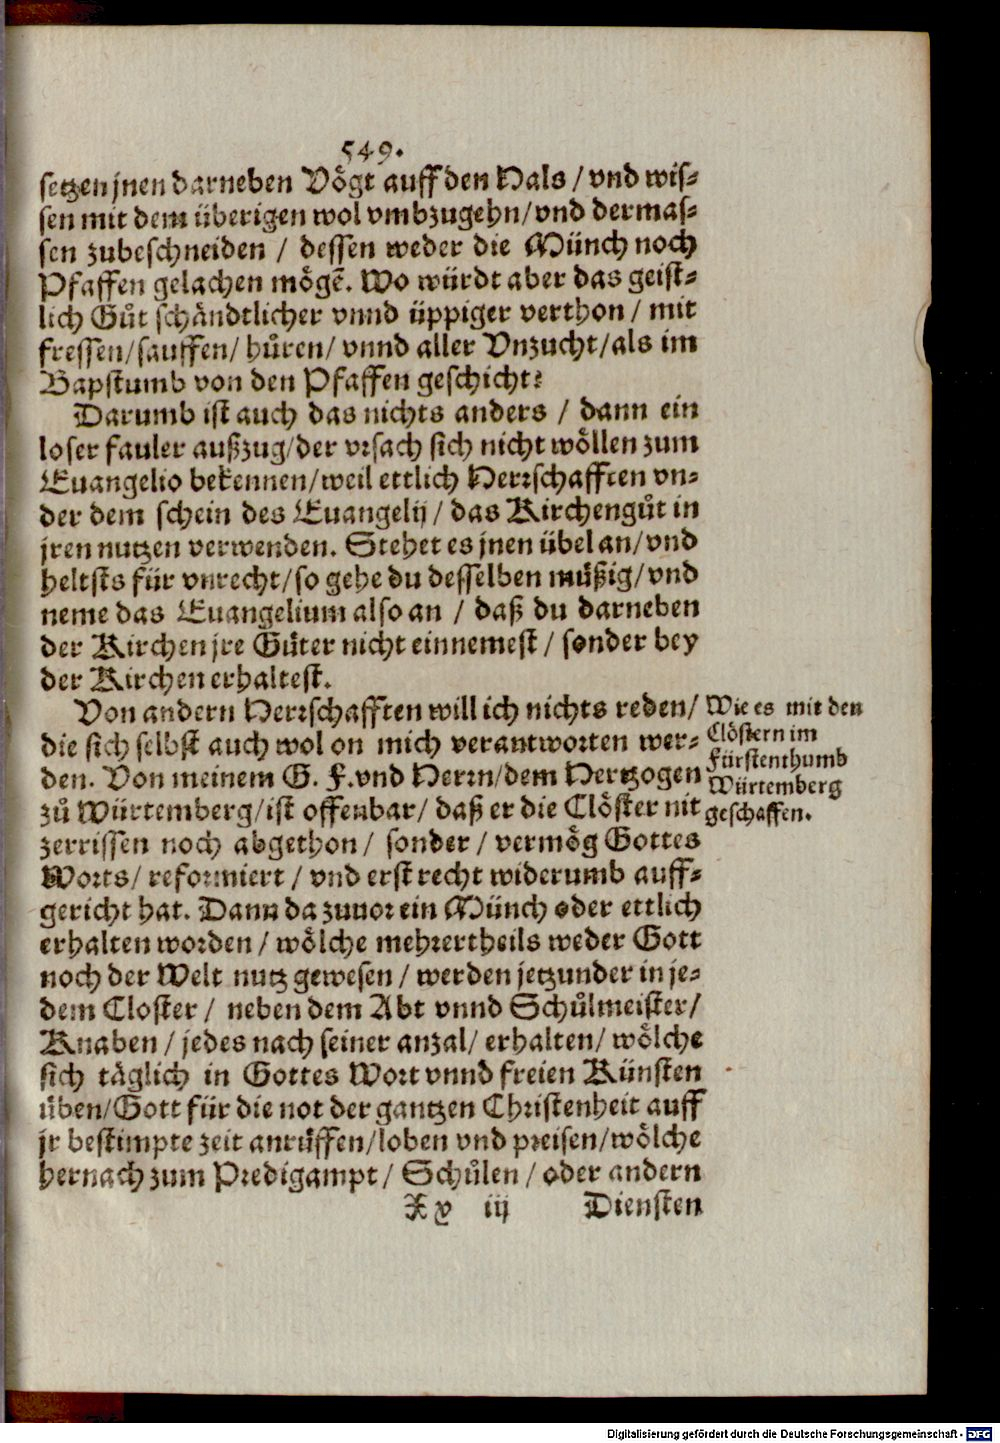 549.
setzen jnen darneben Vögt auff den Hals / vnd wis-
sen mit dem überigen wol vmbzugehn / vnd dermas-
sen zubeschneiden / dessen weder die Münch noch
Pfaffen gelachen mögẽ. Wo würdt aber das geist-
lich Gůt schändtlicher vnnd üppiger verthon / mit
fressen / sauffen / hůren / vnnd aller Vnzucht / als im
Bapstumb von den Pfaffen geschicht?
Darumb ist auch das nichts anders / dann ein
loser fauler außzug / der vrsach sich nicht wöllen zum
Euangelio bekennen / weil ettlich Herrschafften vn-
der dem schein des Euangelij / das Kirchengůt in
jren nutzen verwenden. Stehet es jnen übel an / vnd
heltsts für vnrecht / so gehe du desselben müßig / vnd
neme das Euangelium also an / daß du darneben
der Kirchen jre Güter nicht einnemest / sonder bey
der Kirchen erhaltest.
Von andern Herrschafften will ich nichts reden /
die sich selbst auch wol on mich verantworten wer-
den. Von meinem G. F. vnd Herrn / dem Hertzogen
zů Würtemberg / ist offenbar / daß er die Clöster nit
zerrissen noch abgethon / sonder / vermög Gottes
Worts / reformiert / vnd erst recht widerumb auff-
gericht hat. Dann da zuuor ein Münch oder ettlich
erhalten worden / wölche mehrertheils weder Gott
noch der Welt nutz gewesen / werden jetzunder in je-
dem Closter / neben dem Abt vnnd Schůlmeister /
Knaben / jedes nach seiner anzal / erhalten / wölche
sich täglich in Gottes Wort vnnd freien Künsten
üben / Gott für die not der gantzen Christenheit auff
jr bestimpte zeit anrüffen / loben vnd preisen / wölche
hernach zum Predigampt / Schůlen / oder andern
Xy iij Diensten
Wie es mit den
Clöstern im
Fürstenthumb
Würtemberg
geschaffen.
Digitalisierung gefördert durch die Deutsche Forschungsgemeinschaft - DFG